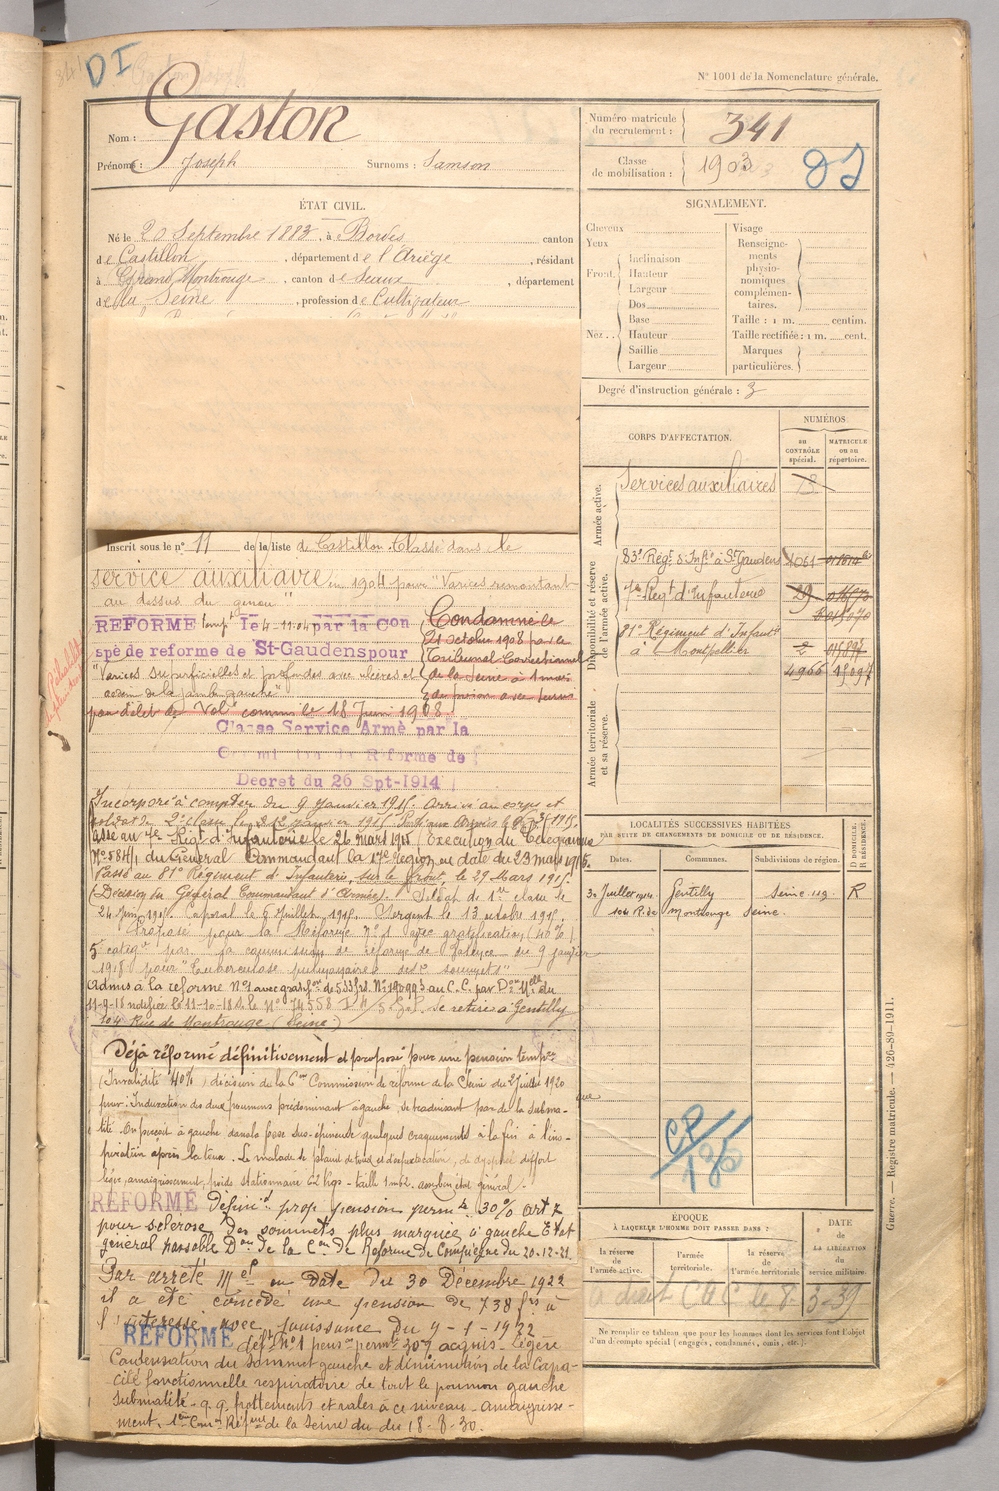 DI
N° 1001 de la Nomenclature générale.
Nom : Gaston
Prénoms : Joseph Surnoms : Samson
Numéro matricule du recrutement : 341
Classe de mobilisation : 1903
ÉTAT CIVIL.
Né le 20 Septembre 1883, à Bordes canton
de Castillon, département de l'Ariège, résidant
à Grand Montrouge, canton de Sceaux, département
de la Seine, profession de Cultivateur
SIGNALEMENT.
Cheveux
Yeux
Front. Inclinaison
Hauteur
Largeur
Nez. Dos
Base
Hauteur
Saillie
Largeur
Visage
Renseignements physionomiques complémentaires.
Taille : 1 m. centim.
Taille rectifiée : 1 m. cent.
Marques particulières.
Degré d'instruction générale : 3
Inscrit sous le n° 11 de la liste de Castillon. Classé dans le
service auxiliaire en 1904 pour "Varices remontant
au dessus du genou"
REFORME temp. le 4-11-04 par la Con
spé de reforme de St-Gaudens pour
"Varices superficielles et profondes avec ulcères et
œdème de la jambe gauche"
Condamné le
21 octobre 1908 par le
Tribunal Correctionnel
de la Seine à 1 mois
de prison avec sursis
pour délit de Vol commis le 18 Juin 1908.
Classe Service Armé par la
Commission de Réforme de
Decret du 26 Spt-1914
Incorporé à compter du 9 Janvier 1915. Arrivé au corps et
soldat de 2e classe le 12 Janvier 1915.
Passé au 7e Régt d'Infanterie le 26 mars 1915 Exécution du Télégramme
N° 584/1 du Général Commandant la 17e Région en date du 23 mars 1915.
Passé au 81e Régiment d'Infanterie, sur le front, le 29 Mars 1915.
(Décision du Général Commandant d'Armée). Soldat de 1re classe le
24 Juin 1915. Caporal le 8 Juillet 1915. Sergent le 13 octobre 1915.
Proposé pour la Réforme N° 1 avec gratification (40%)
5e catégie par la commission de réforme de Valence du 9 Janvier
1918 pour "Tuberculose pulmonaire des sommets"
Admis à la réforme N° 1 avec gratifon de 533 frs N° 190993 au C.C. par Don Mlle du
11-9-18 notifiée le 11-10-18 Se retire à Gentilly
104 Rue de Montrouge (Seine)
Déjà réformé définitivement et proposé pour une pension tempre
(Invalidité 40%) décision de la 6me Commission de réforme de la Seine du 2 Juillet 1920
pour : Induration des deux poumons prédominant à gauche, se traduisant par de la subma-
tité. On perçoit à gauche dans la fosse sus-épineuse quelques craquements à la fin de l'ins-
piration après la toux. Le malade se plaint de toux et d'expectoration, de dyspnée d'effort
léger amaigrissement, poids stationnaire 62 kgs - taille 1m62. assez bon état général.
REFORMÉ Définitf prop pension perme 30% art 7
pour sclérose des sommets plus marquée à gauche Etat
général passable Don de la Con de Réforme de Compiègne du 20-12-21
Par arrêté Mel en date du 30 Décembre 1922
il a été concédé une pension de 738 frs à
l'intéressé avec jouissance du 9-1-1922
REFORMÉ déft n°1 pens. perm. 30% acquis - Légère
Condensation du sommet gauche et diminution de la Capa-
cité fonctionnelle respiratoire de tout le poumon gauche
Submatité - q.q. frottements et rales à ce niveau - amaigrisse-
ment. 1ère Comn Réfme de la Seine du 18-8-30.
CORPS D'AFFECTATION.
NUMÉROS
au CONTRÔLE spécial.
MATRICULE ou au répertoire.
Armée active.
Services auxiliaires
Disponibilité et réserve de l'armée active.
83e Régt d'Infie à St Gaudens 1061
7e Régt d'Infanterie 29
81e Régiment d'Infantie
à Montpellier 2
4966
Armée territoriale et sa réserve.
LOCALITÉS SUCCESSIVES HABITÉES
PAR SUITE DE CHANGEMENTS DE DOMICILE OU DE RÉSIDENCE.
Dates. Communes. Subdivisions de région.
D DOMICILE. R RÉSIDENCE.
Gentilly Seine R
104 R. de Montrouge Seine.
CP/135
ÉPOQUE
À LAQUELLE L'HOMME DOIT PASSER DANS :
la réserve de l'armée active.
l'armée territoriale.
la réserve de l'armée territoriale
DATE de LA LIBÉRATION du service militaire.
a droit CdC le 8-3-39
Ne remplir ce tableau que pour les hommes dont les services font l'objet
d'un décompte spécial (engagés, condamnés, omis, etc.).
Guerre. — Registre matricule. — 426-89-1911.